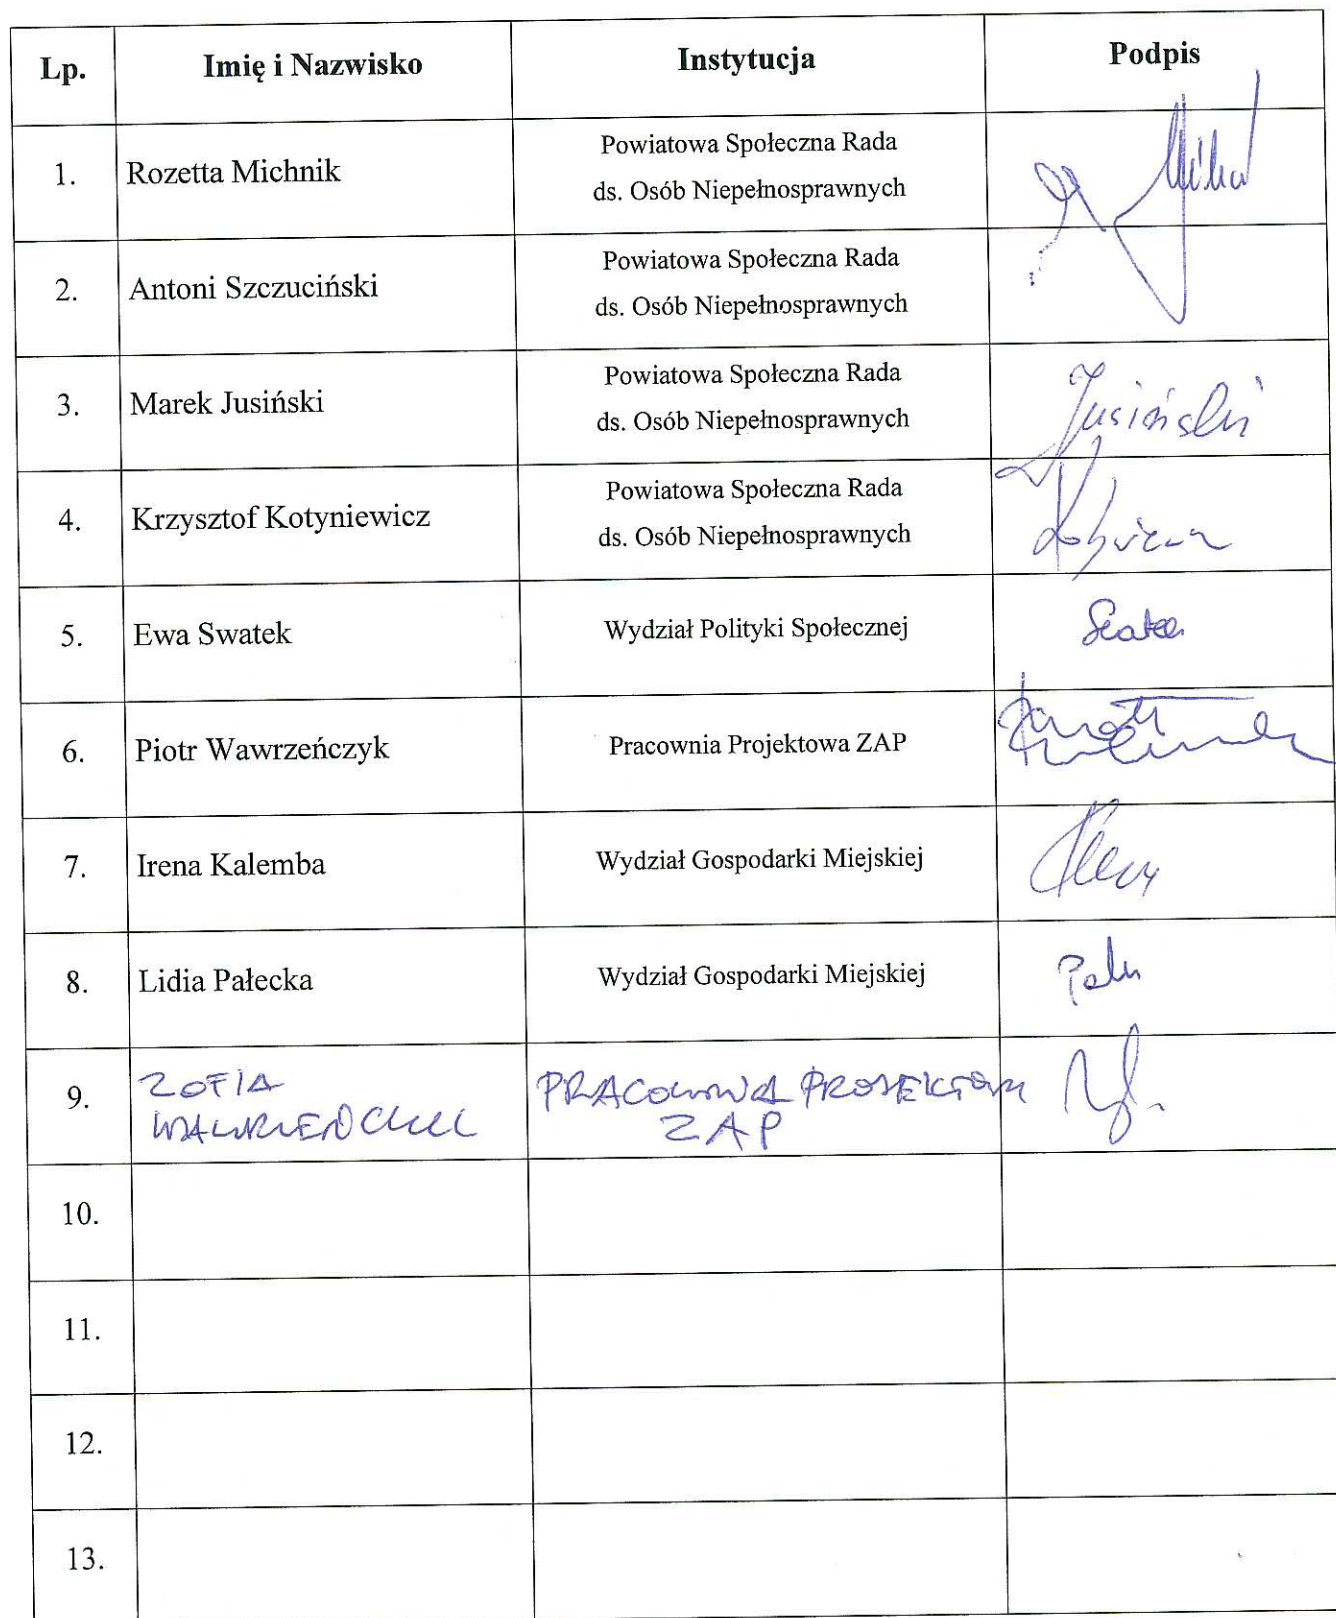 Lp. Imię i Nazwisko Instytucja Podpis
1. Rozetta Michnik Powiatowa Społeczna Rada
ds. Osób Niepełnosprawnych
2. Antoni Szczuciński Powiatowa Społeczna Rada
ds. Osób Niepełnosprawnych
3. Marek Jusiński Powiatowa Społeczna Rada
ds. Osób Niepełnosprawnych Jusiński
4. Krzysztof Kotyniewicz Powiatowa Społeczna Rada
ds. Osób Niepełnosprawnych
5. Ewa Swatek Wydział Polityki Społecznej
6. Piotr Wawrzeńczyk Pracownia Projektowa ZAP
7. Irena Kalemba Wydział Gospodarki Miejskiej
8. Lidia Pałecka Wydział Gospodarki Miejskiej
9. ZOFIA PRACOWNIA
ZAP
10.
11.
12.
13.